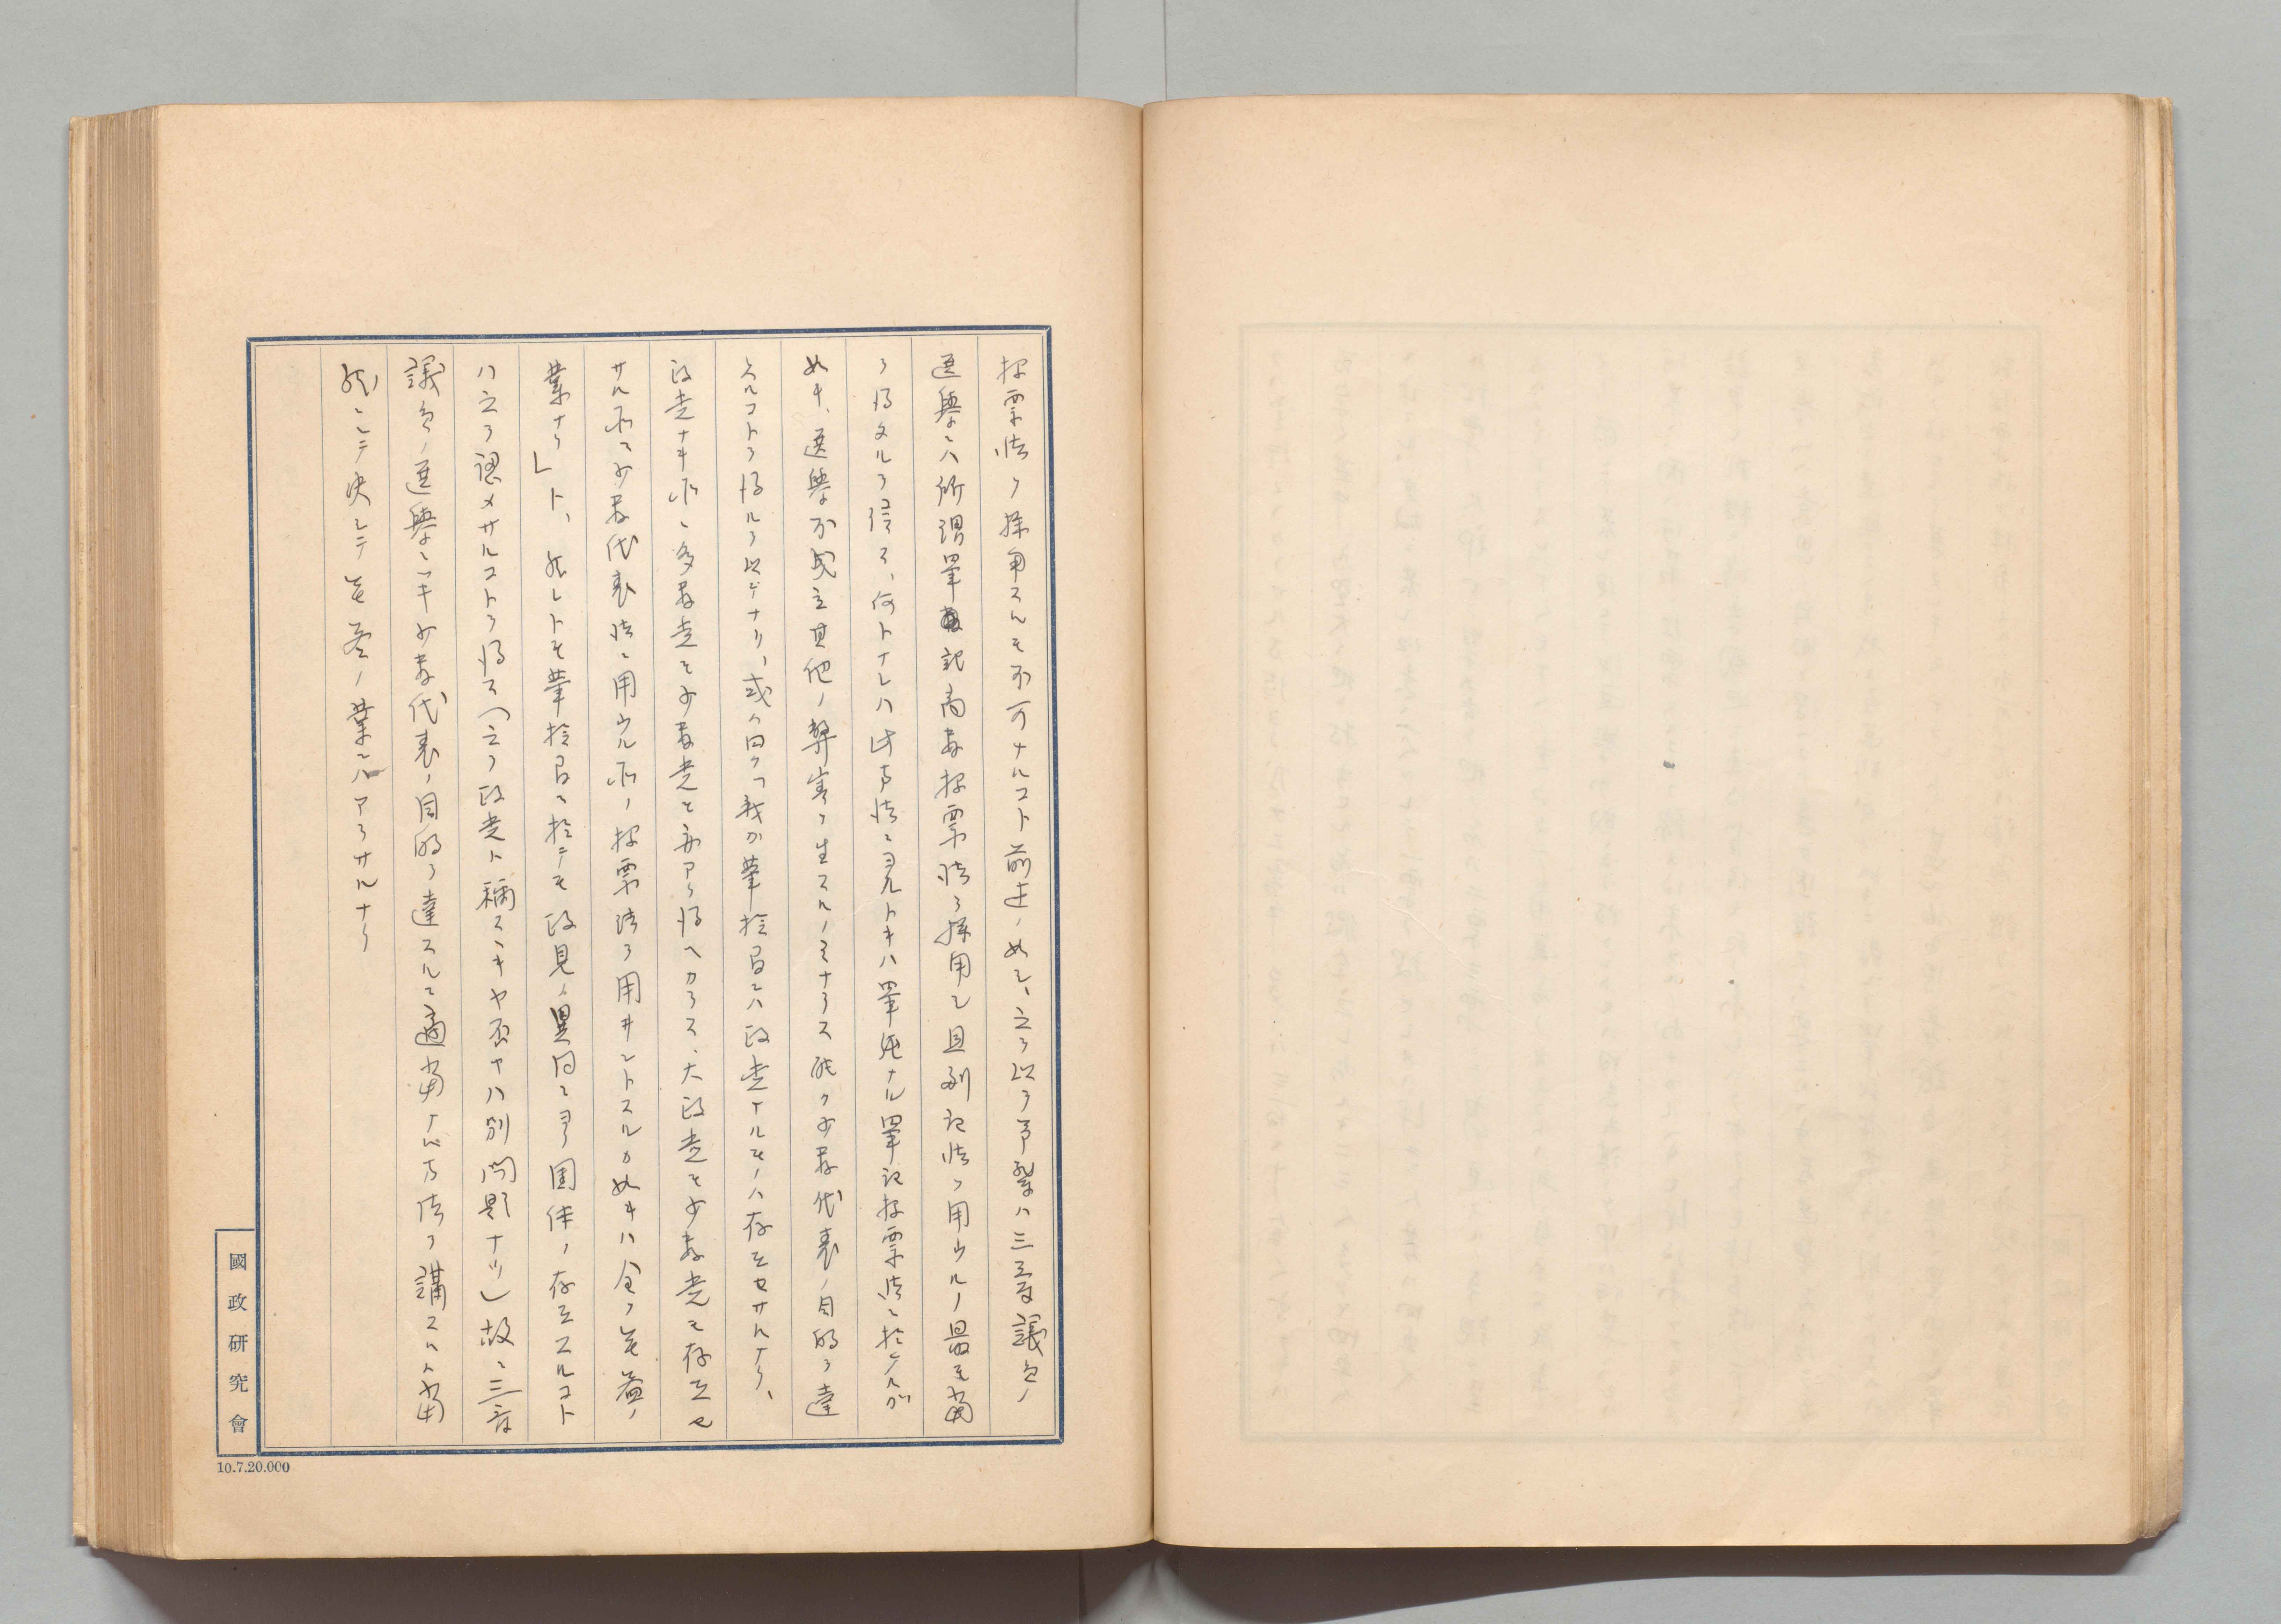 投票法ヲ採用スルモ不可ナルコト前述ノ如シ、之ヲ以テ予輩ハ三級議員ノ
選舉ニハ所謂單記商数投票法ヲ採用シ且列記法ヲ用ウルノ最モ当
ヲ得タルヲ信ス、何トナレハ此方法ニヨルトキハ單純ナル單記投票法ニ於ケルガ
如キ、選舉不成立其他ノ弊害ヲ生スルノミナラス能ク少数代表ノ目的ヲ達
スルコトヲ得ルヲ以テナリ、或ハ曰ク「我カ華族間ニハ政党ナルモノハ存在セサルナリ、
政党ナキ所ニ多数党モ少数党モ アリ得ヘカラス、大政党モ少数党モ存在セ
サル所ニ少数代表法ニ用ウル所ノ投票法ヲ用ヰントスルカ如キハ全ク無益ノ
業ナリ」ト、然レトモ華族間ニ於テモ政見ノ異同ニヨリ團体ノ存在スルコト
ハ之ヲ認メサルコトヲ得ス(之ヲ政党ト稱スヘキヤ否ヤハ別問題ナリ)故ニ三級
議員ノ選舉ニツキ少数代表ノ目的ヲ達スルニ適当ナル方法ヲ講スルハ当
然ニシテ決シテ無益ノ業ニハアラサルナリ
國政研究會
10.7.20.000